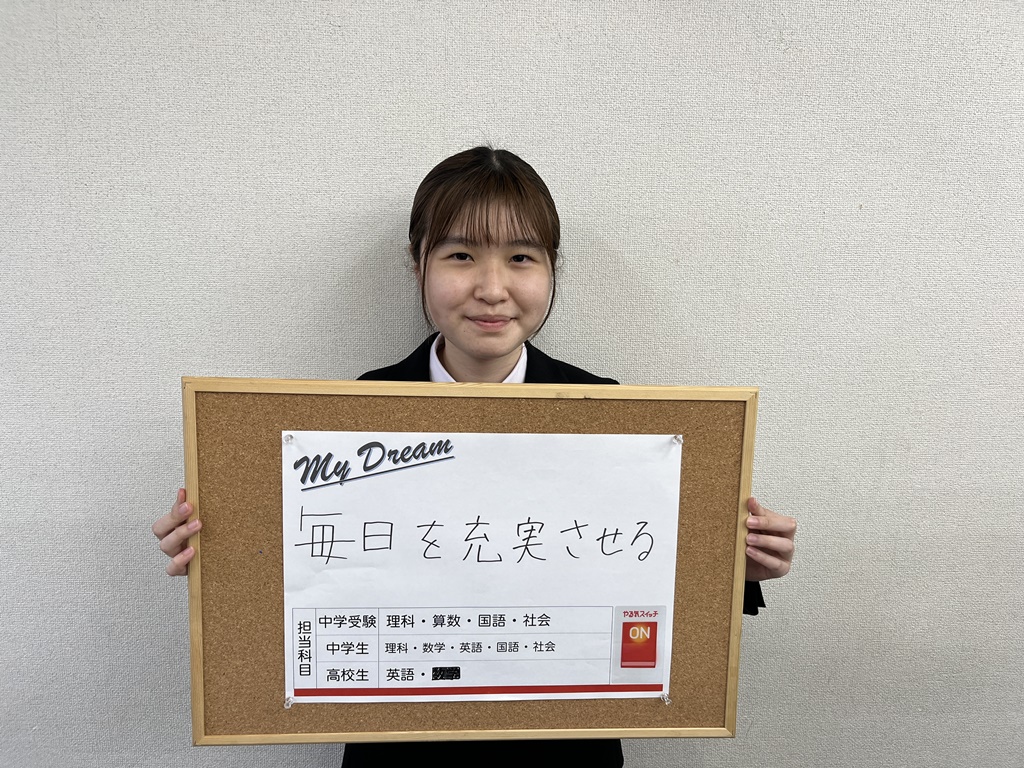 My Dream
毎日を充実させる
担当科目
中学受験 理科・算数・国語・社会
中学生 理科・数学・英語・国語・社会
高校生 英語・
やる気スイッチ
ON